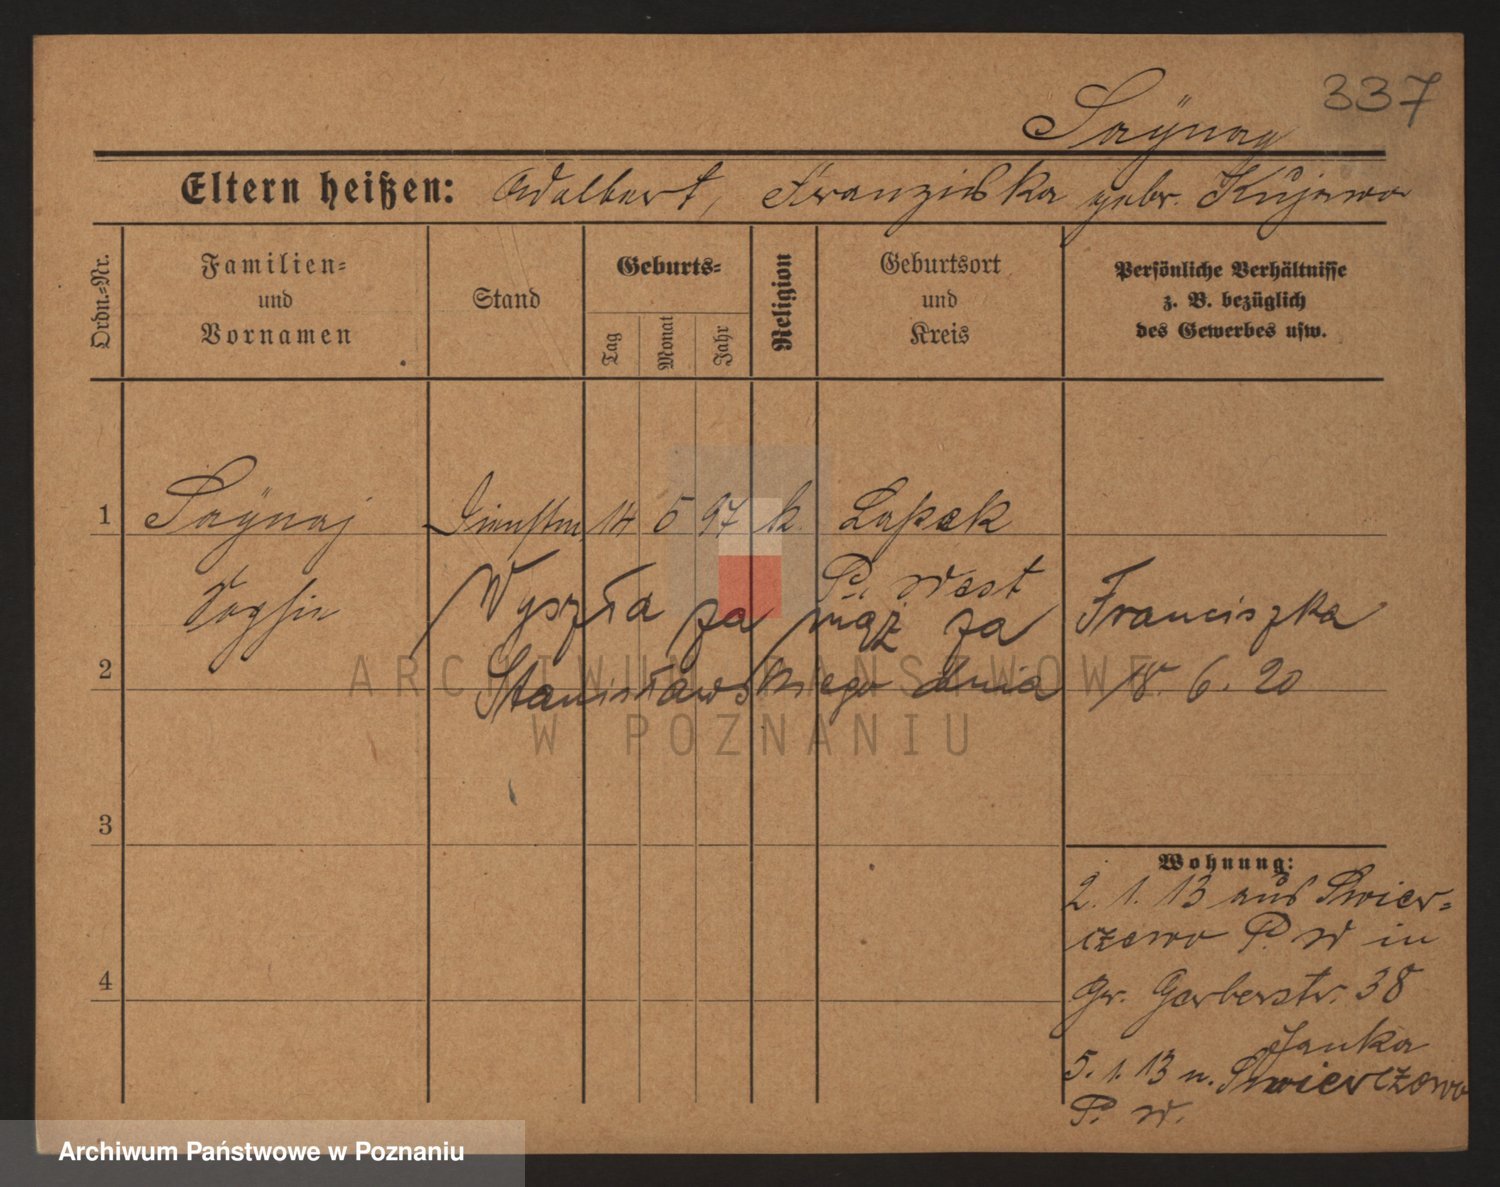 337
Saÿnaj
Eltern heißen: Adalbert, Franziska gebr. Kujawa
Ordn.-Nr.
Familien-
und
Vornamen
Stand
Geburts-
Tag
Monat
Jahr
Religion
Geburtsort
und
Kreis
Persönliche Verhältnisse
z. B. bezüglich
des Gewerbes usw.
1 Saÿnaj 14 5 97 k.
Sophie
P. West
Wyszła za mąż za Franciszka
Stanisławskiego dnia 18. 6. 20
2
3
4
Wohnung:
2. 1. 13 aus Swier-
czewo P. W in
Gr. Gerberstr. 38
Janka
5. 1. 13 n. Swierczewo
P. W.
ARCHIWUM PAŃSTWOWE
W POZNANIU
Archiwum Państwowe w Poznaniu